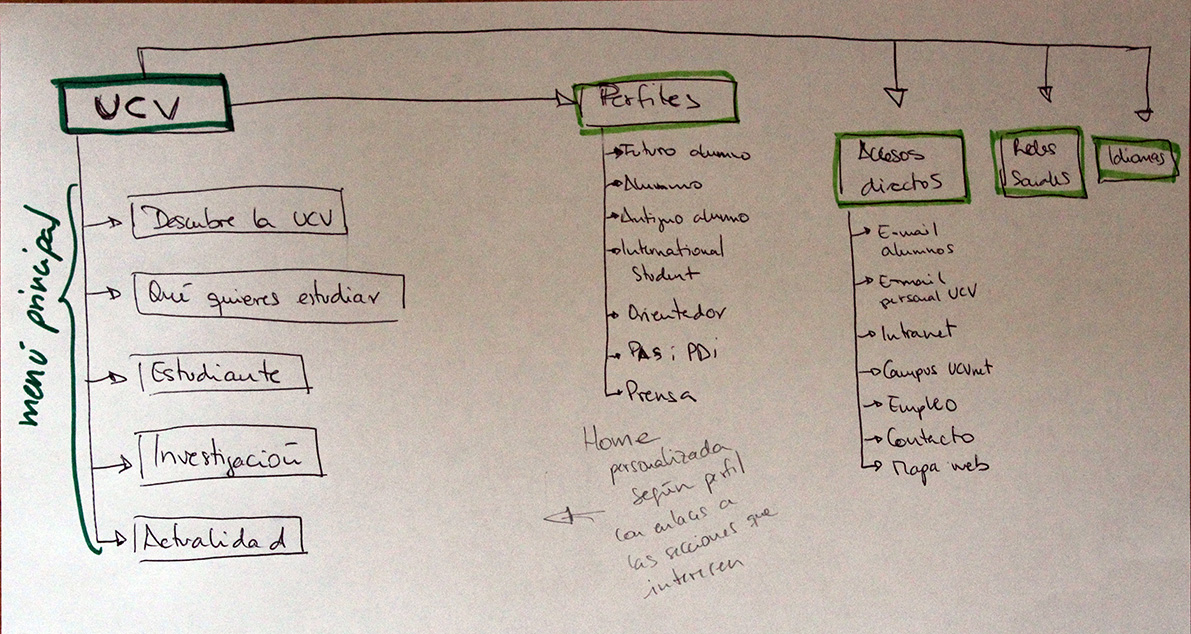 UCV
menú principal
Descubre la UCV
Qué quieres estudiar
Estudiante
Investigación
Actualidad
Perfiles
Futuro alumno
Alumno
Antiguo alumno
International
Student
Orientador
PAS i PDi
Prensa
Home
personalizada
según perfil
con enlaces a
las secciones que
interesen
Accesos
directos
E-mail
alumnos
E-mail
personal UCV
Intranet
Campus UCVnet
Empleo
Contacto
Mapa web
Redes
Sociales
Idiomas